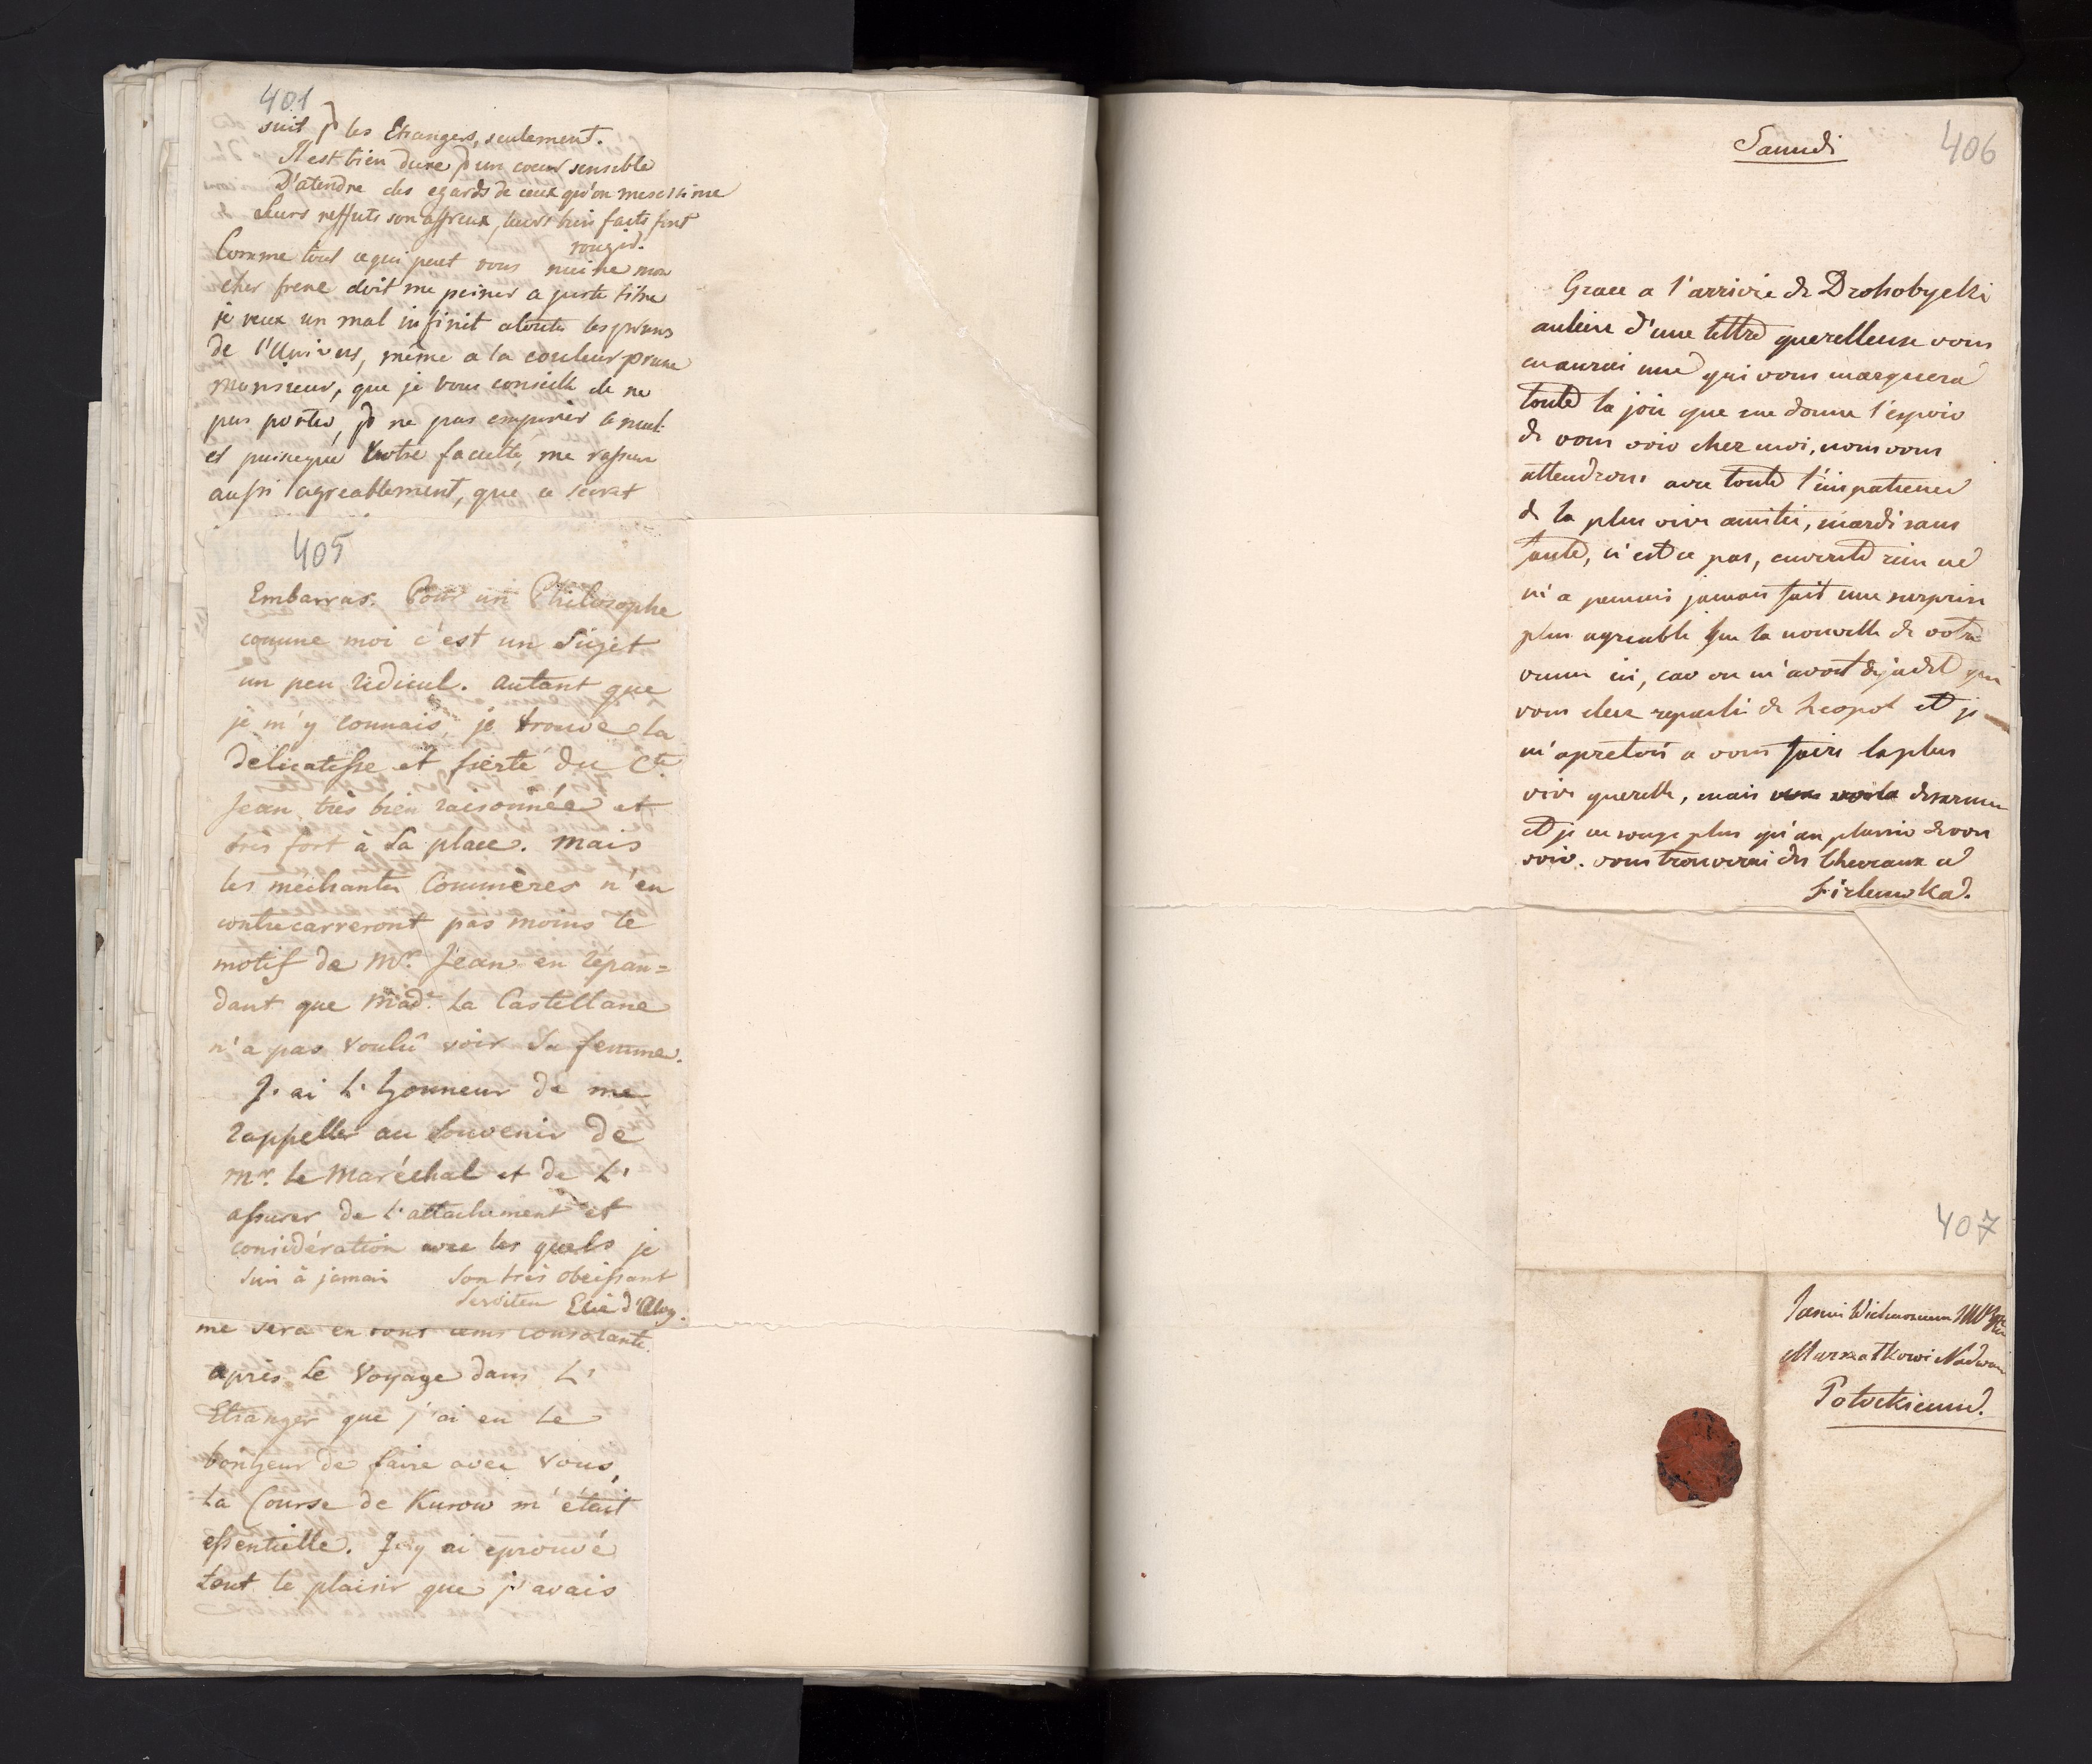 401
suit p les Etrangers, seulement.
Il est bien dure p un coeur sensible
D'atendre des egards de ceux qu'on mesestime
Leurs reffuts son affreux, leurs bien faits font
rougir.
Comme tout ce qui peut vous nuire mon
cher frere doit me peiner a juste titre
je veux un mal infinit a toutes les prunes
de l'Univers, même a la couleur prune
monsieur, que je vous conseille de ne
pas porter, p ne pas empirer le mal
et puisque votre facette me
aussi agreablement, que ce
405
Embarras. Pour un Philosophe
comme moi c'est un Sujet
un peu ridicul. autant que
je m'y connais, je trouve la
délicatesse et fierté du Cte
Jean très bien raisonnée et
très fort à sa place. mais
les méchantes Commères n'en
contrecarreront pas moins le
motif de Mr. Jean en répan=
dant que Made. La Castellane
n'a pas voulû voir Sa femme.
J'ai L'honneur de me
rappeller au Souvenir de
Mr. Le Maréchal et de L'
assurer de L'attachement et
considération avec les quels je
suis à jamais Son très obeissant
Serviteur Elie d'Aloy.
me sera en tout tems consolante.
après Le Voyage dans L'
Etranger que j'ai eu Le
bonheur de faire avec Vous,
La Course de Kurow m'était
essentielle. J'y ai eprouvé
tout le plaisir que j'avais
Samedi
406
Grace a l'arrivée de Drohobycki
aulieu d'une lettre querelleuse vous
en aurai une qui vous marquera
toute la joie que me donne l'espoir
de vous voir chez moi, nous vous
attendrons avec toute l'impatience
de la plus vive amitié, mardi sans
faute, n'est ce pas, en verité rien ne
m'a jamais fait une surprise
plus agreable que la nouvelle de votre
venue ici, car on m'avoit deja dit que
vous etiez reparti de Leopol et je
m'apretois a vous faire la plus
vive querelle, mais voila desarmée
et je ne songe plus qu'au plaisir de vous
voir. vous trouverai des Chevaux a
Firleiowka.
407
Jasnie Wielmoznemu JMPanu
Marszałkowi Nadwor
Potockiemu.